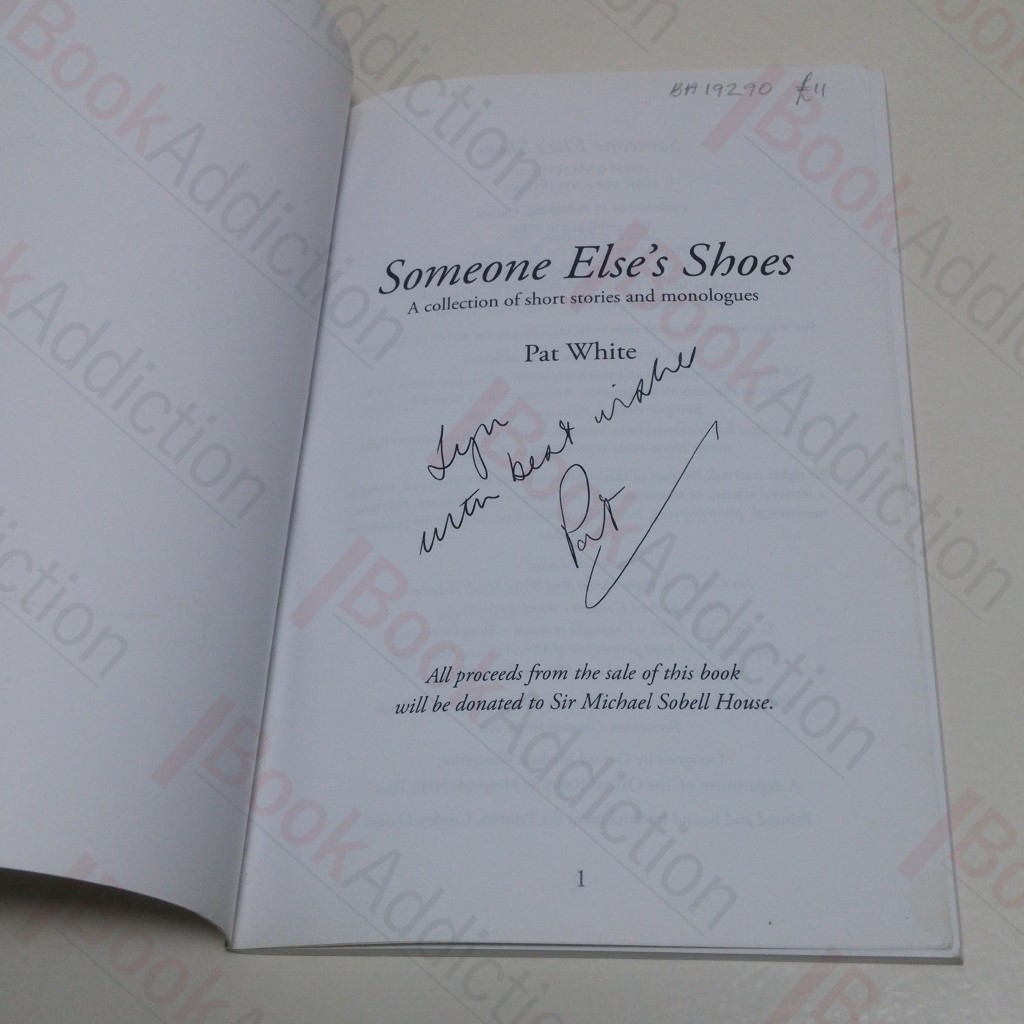 BA19290 £11
Someone Else's Shoes
A collection of short stories and monologues
Pat White
Lyn
with best wishes
Pat
All proceeds from the sale of this book
will be donated to Sir Michael Sobell House.
1
BookAddiction